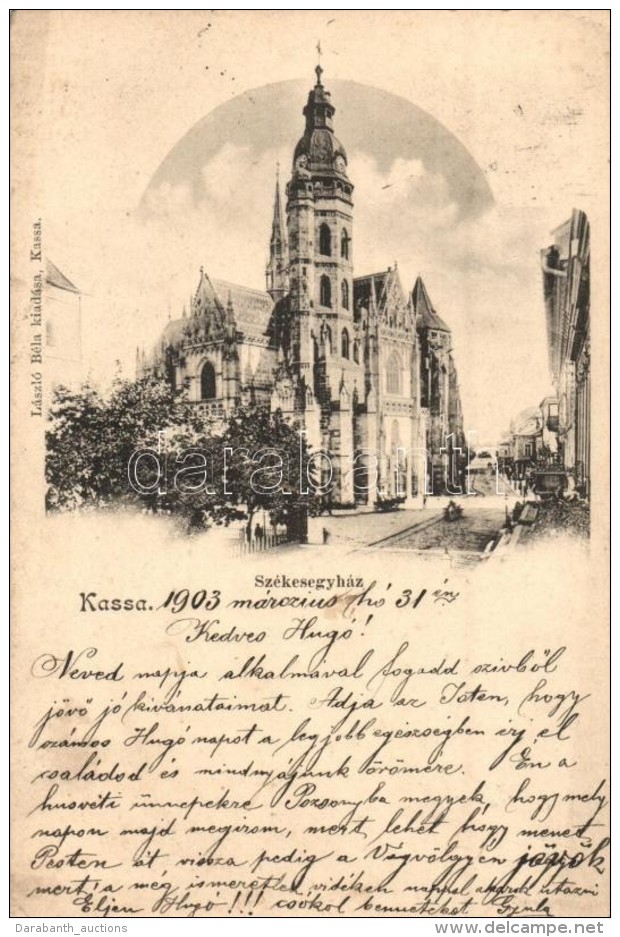 László Béla kiadása, Kassa.
darabanth
Székesegyház
Kassa. 1903 márczius hó 31 én
Kedves Hugó!
Neved napja alkalmával fogadd szivből
jövő jó kivánataimat. Adja az Isten, hogy
számos Hugó napot a legjobb egészségben érj el
családod és mindnyájunk örömére. Én a
husvéti ünnepekre Pozsonyba megyek, hogy mely
napon majd megirom, mert lehet hogy menet
Pesten át vissza pedig a Vágvölgyén jövök
mert a még ismeretlen vidéken nappal akarok utazni
Éljen Hugó!!! csókol benneteket Gyula
Darabanth_auctions
www.delcampe.net